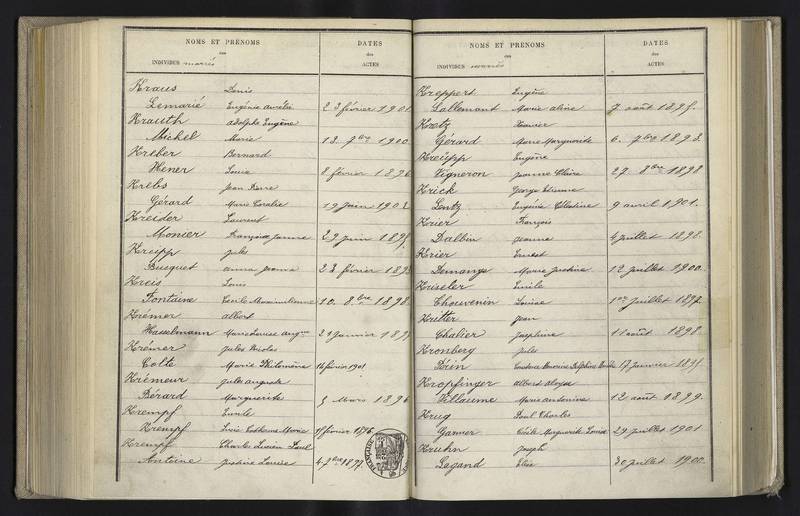 NOMS ET PRÉNOMS DATES
des des
INDIVIDUS mariés ACTES
Kraus Denis
Lemarié Eugénie Aurélie 23 février 1901.
Krauth Adolphe Eugène
Michel Marie 13. 7bre 1900.
Kreber Bernard
Hener Louise 8 février 1896
Krebs Jean Pierre
Gérard Marie Coralie 19 juin 1902
Kreider Laurent
Monier Françoise Jeanne 29 juin
Kreipp Jules
Bucquet Anna Jeanne 23 février
Kreis Louis
Fontaine Cécile Maximilienne 10. 8bre 1898.
Krémer Albert
Hasselmann Marie Louise 21 janvier
Krémer Jules Nicolas
Colte Marie Philomène 16 février 1901
Krémeur Jules Auguste
Bérard Marguerite 3 Mars 1896
Krempf Emile
Krempf Marie 1er février 1896.
Krempf Charles Lucien Paul
Antoine Justine Louise 4. 7bre 1897.
NOMS ET PRÉNOMS DATES
des des
INDIVIDUS mariés ACTES
Kreppert Eugène
Lallemant Marie Aline 7 août 1895.
Kretz Xavier
Gérard Marie Marguerite 6. 7bre 1893.
Kreüpp Eugène
Vigneron Jeanne Claire 29. 8bre 1898
Krick George Etienne
Lentz Eugénie Célestine 9 avril 1901.
Krier François
Dalbin Jeanne 4 juillet 1898.
Krier Ernest
Demange Marie Justine 12 juillet 1900.
Kriseler Emile
Chouvenin Louise 1er juillet 1897.
Kritter Jean
Chalier Joséphine 11 août 1898.
Kronberg Jules
Delphine Emilie 17 janvier 1895.
Kropfinger Albert Aloyse
Villaume Marie Antonine 12 août 1899.
Krug Paul Charles
Garnier Cécile Marguerite Louise 29 juillet 1901.
Kruhn Joseph
Lagand Elise 30 juillet 1900.